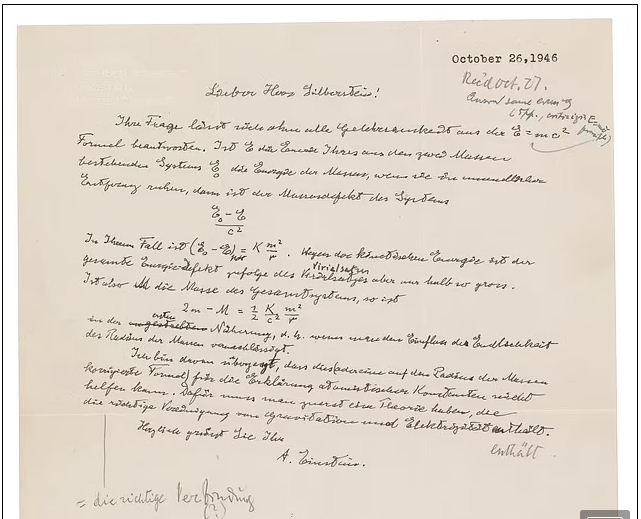 October 26, 1946
Rec'd Oct. 27.
Answ'd same evening
Lieber Herr Silberstein!
Ihre Frage lässt sich ohne alle Gelehrsamkeit aus der E = mc²
Formel beantworten. Ist E die Energie Ihres aus den zwei Massen
bestehenden Systems E₀ die Energie der Massen, wenn sie in unendlicher
Entfernung ruhen, dann ist der Massendefekt des Systems
E₀ – E
c²
In Ihrem Fall ist (E₀ – E) = K m²/r. Wegen der kinetischen Energie ist der
gesamte Energiedefekt zufolge des Virialsatzes aber nur halb so gross.
Ist also M die Masse des Gesamtsystems, so ist
2m – M = ½ K/c² m²/r
in der ersten Näherung, d. h. wenn man den Einfluss der Endlichkeit
des Radius der Massen vernachlässigt.
Ich bin davon überzeugt, dass dies (oder eine auf den Radius der Massen
korrigierte Formel) für die Erklärung atomistischer Konstanten nicht
helfen kann. Dafür muss man zuerst eine Theorie haben, die
die richtige Vereinigung von Gravitation und Elektrizität enthält.
enthält
Herzlich grüsst Sie Ihr
A. Einstein.
= die richtige Verbindung
(?)